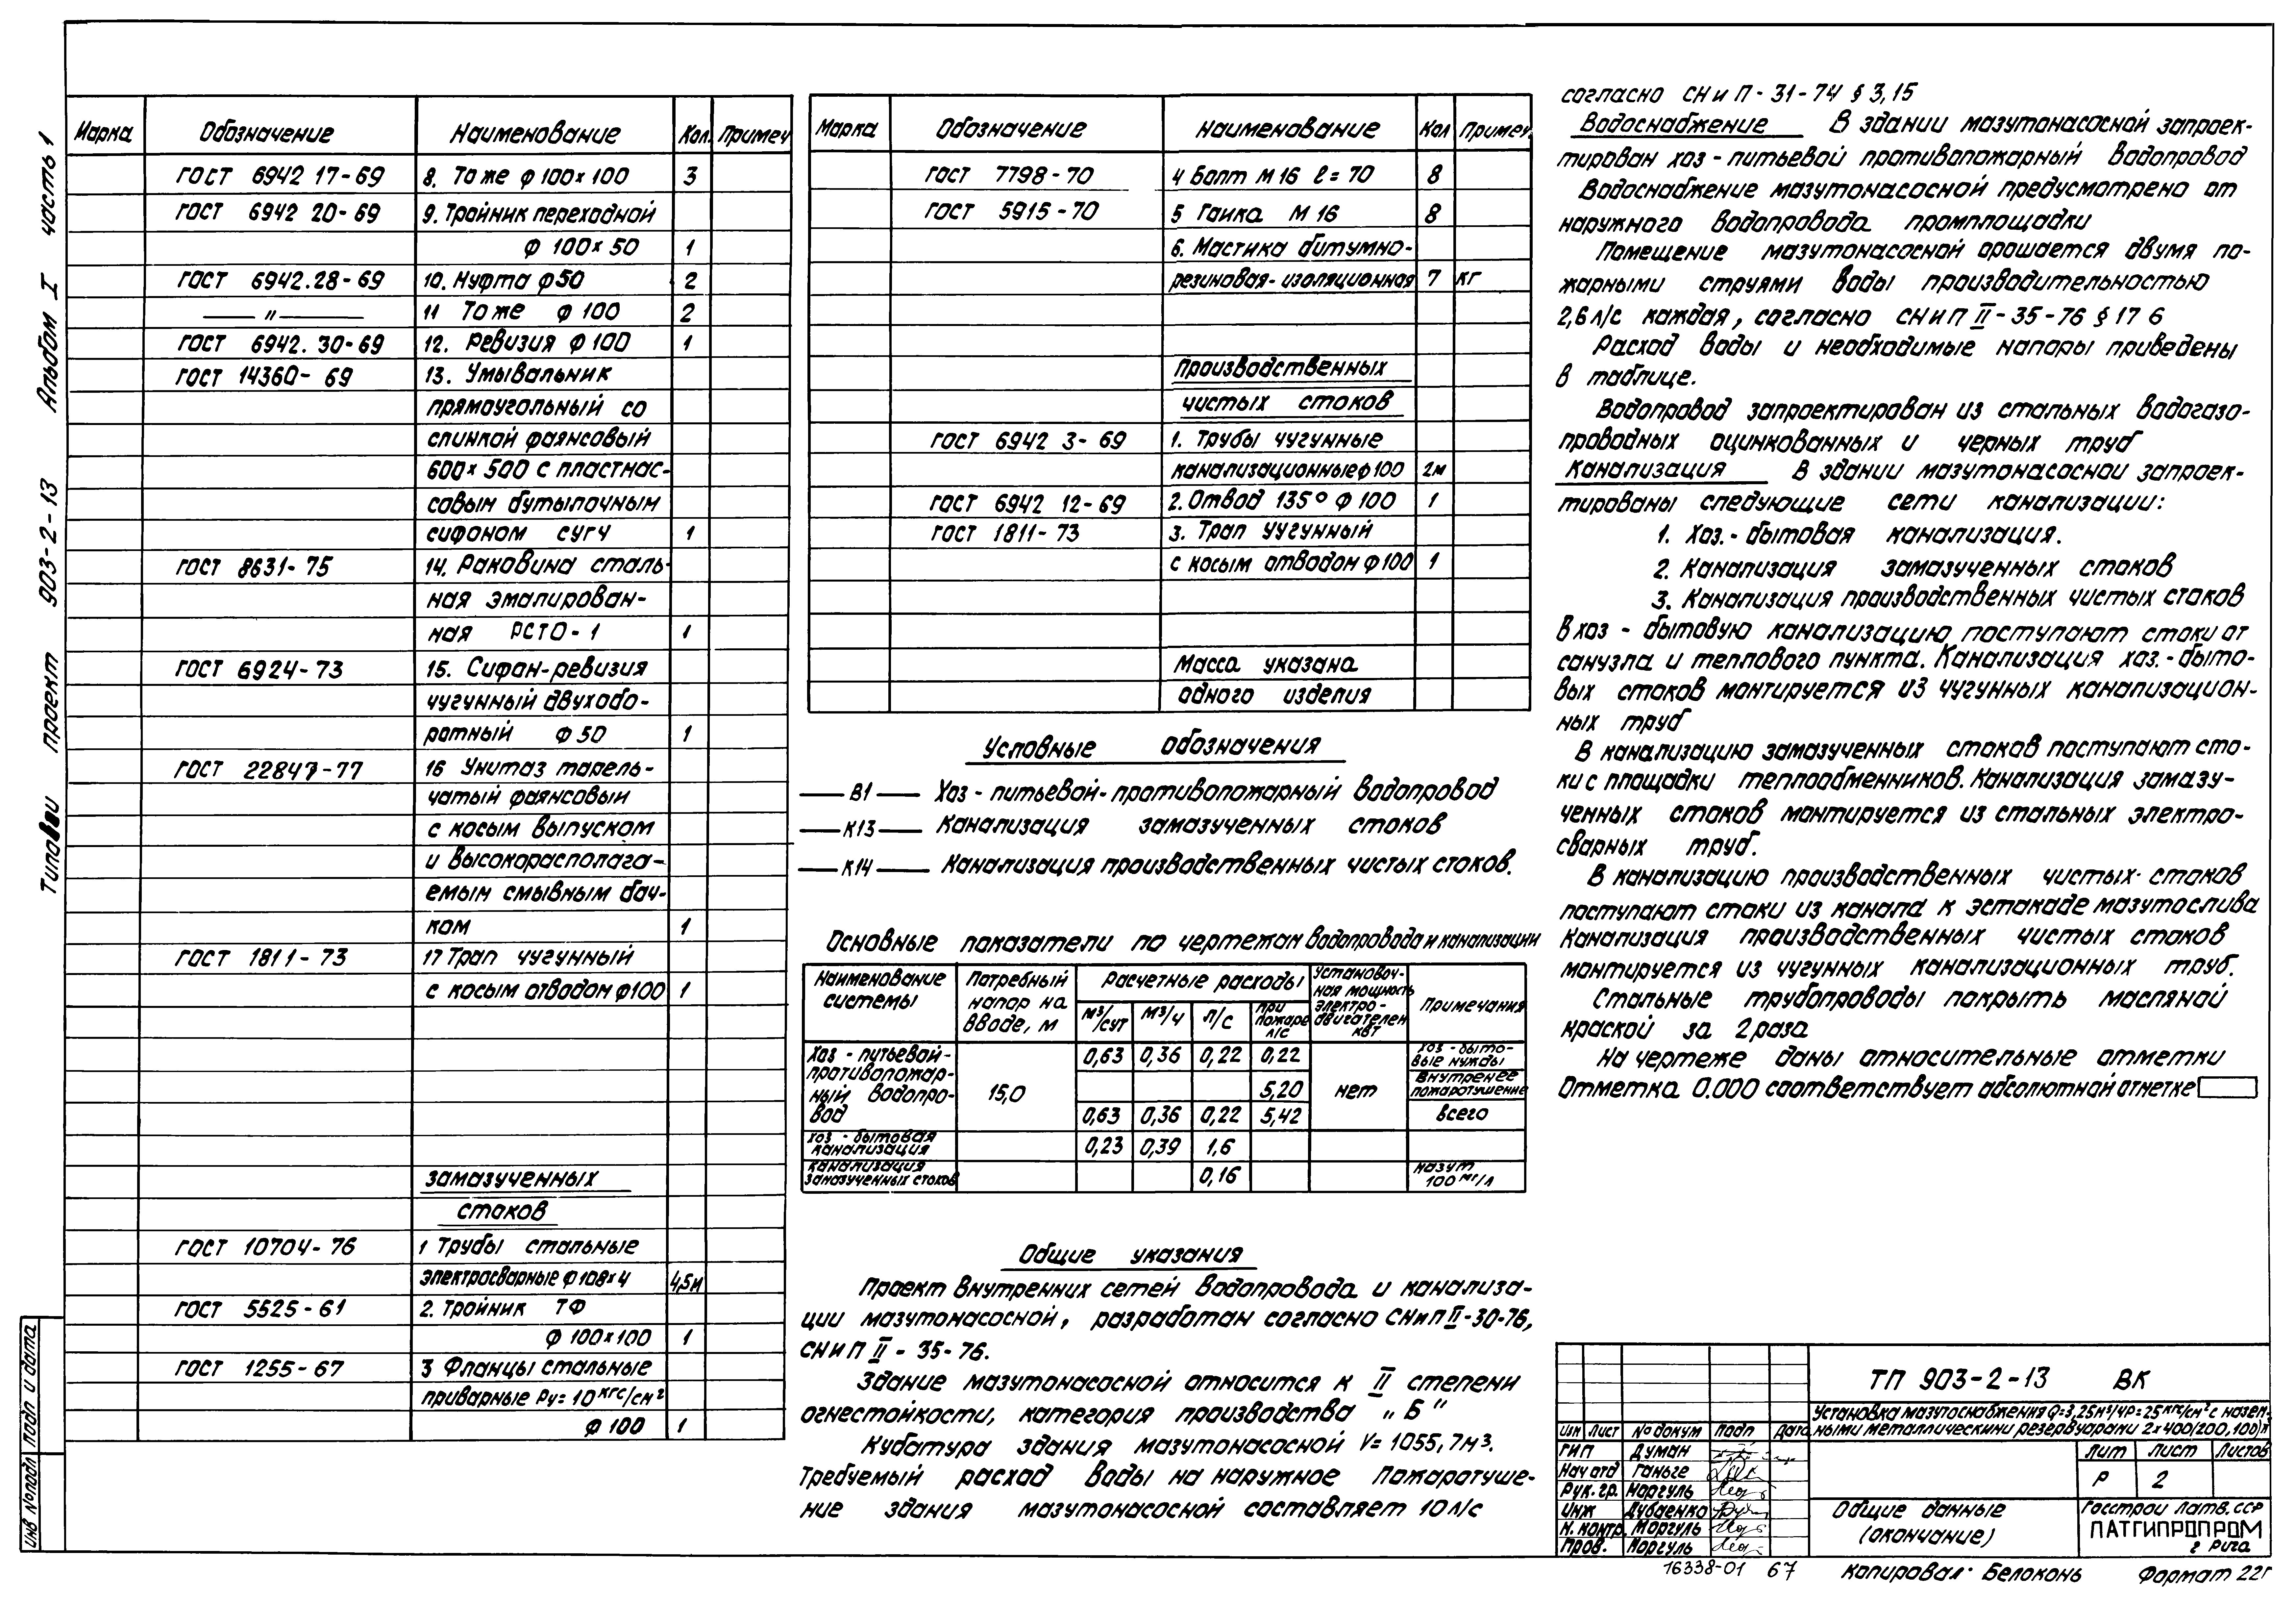 Типовой проект 903-2-13 Альбом I часть 1
Марка Обозначение Наименование Кол. Примеч
ГОСТ 6942 17-69 8. То же φ 100×100 3
ГОСТ 6942 20-69 9. Тройник переходной
φ 100×50 1
ГОСТ 6942.28-69 10. Муфта φ50 2
—〃— 11 То же φ 100 2
ГОСТ 6942.30-69 12. Ревизия φ 100 1
ГОСТ 14360-69 13. Умывальник
прямоугольный со
спинкой фаянсовый
600×500 с пластмас-
совым бутылочным
сифоном СУГЧ 1
ГОСТ 8631-75 14. Раковина сталь-
ная эмалирован-
ная РСТО-1 1
ГОСТ 6924-73 15. Сифон-ревизия
чугунный двухобо-
ротный φ 50 1
ГОСТ 22847-77 16 Унитаз тарель-
чатый фаянсовый
с косым выпуском
и высокорасполага-
емым смывным бач-
ком 1
ГОСТ 1811-73 17 Трап чугунный
с косым отводом φ100 1
замазученных
стоков
ГОСТ 10704-76 1 Трубы стальные
электросварные φ108×4 4,5м
ГОСТ 5525-61 2. Тройник ТФ
φ 100×100 1
ГОСТ 1255-67 3 Фланцы стальные
приварные Ру=10 кгс/см²
φ 100 1
Марка Обозначение Наименование Кол Примеч.
ГОСТ 7798-70 4 Болт М16 ℓ=70 8
ГОСТ 5915-70 5 Гайка М16 8
6. Мастика битумно-
резиновая-изоляционная 7 кг
Производственных
чистых стоков
ГОСТ 6942 3-69 1. Трубы чугунные
канализационные φ100 2м
ГОСТ 6942 12-69 2. Отвод 135° φ 100 1
ГОСТ 1811-73 3. Трап чугунный
с косым отводом φ100 1
Масса указана
одного изделия
Условные обозначения
—В1— Хоз-питьевой-противопожарный водопровод
—К13— Канализация замазученных стоков
—К14— Канализация производственных чистых стоков.
Основные показатели по чертежам водопровода и канализации
Наименование системы Потребный напор на вводе, м Расчетные расходы Установоч-ная мощность электро-двигателей кВт Примечания
м³/сут м³/ч л/с при пожаре л/с
Хоз-питьевой-противопожар-ный водопро-вод 15,0 0,63 0,36 0,22 0,22 нет хоз-быто-вые нужды
5,20 внутренее пожаротушение
0,63 0,36 0,22 5,42 всего
хоз-бытовая канализация 0,23 0,39 1,6
канализация замазученных стоков 0,16 мазут 100 мг/л
Общие указания
Проект внутренних сетей водопровода и канализа-
ции мазутонасосной, разработан согласно СНиП II-30-76,
СНиП II-35-76.
Здание мазутонасосной относится к II степени
огнестойкости, категория производства „Б"
Кубатура здания мазутонасосной V=1055,7м³.
Требуемый расход воды на наружное пожаротуше-
ние здания мазутонасосной составляет 10л/с
согласно СНиП-31-74 § 3,15
Водоснабжение В здании мазутонасосной запроек-
тирован хоз-питьевой противопожарный водопровод
Водоснабжение мазутонасосной предусмотрено от
наружного водопровода промплощадки
Помещение мазутонасосной орошается двумя по-
жарными струями воды производительностью
2,6л/с каждая, согласно СНиП II-35-76 § 17 6
Расход воды и необходимые напоры приведены
в таблице.
Водопровод запроектирован из стальных водогазо-
проводных оцинкованных и черных труб
Канализация В здании мазутонасосной запроек-
тированы следующие сети канализации:
1. Хоз.-бытовая канализация.
2. Канализация замазученных стоков
3. Канализация производственных чистых стоков
В хоз-бытовую канализацию поступают стоки от
санузла и теплового пункта. Канализация хоз.-быто-
вых стоков монтируется из чугунных канализацион-
ных труб
В канализацию замазученных стоков поступают сто-
ки с площадки теплообменников. Канализация замазу-
ченных стоков монтируется из стальных электро-
сварных труб.
В канализацию производственных чистых стоков
поступают стоки из канала к эстакаде мазутослива
Канализация производственных чистых стоков
монтируется из чугунных канализационных труб.
Стальные трубопроводы покрыть масляной
краской за 2 раза
На чертеже даны относительные отметки
Отметка 0.000 соответствует абсолютной отметке
ТП 903-2-13 ВК
Установка мазутоснабжения Q=3,25м³/ч Р=25кгс/см² с назем-
ными металлическими резервуарами 2×400(200,100)м
Изм Лист № докум Подп Дата
ГИП Думан
Нач отд Ганьге
Рук. гр. Моргуль
Инж Дубаенко
Н. контр. Моргуль
Пров. Моргуль
Лит Лист Листов
Р 2
Общие данные
(окончание)
Госстрой Латв. ССР
ЛАТГИПРОПРОМ
г Рига
Инв № подл Подп и дата
16338-01 67
Копировал: Белоконь Формат 22г